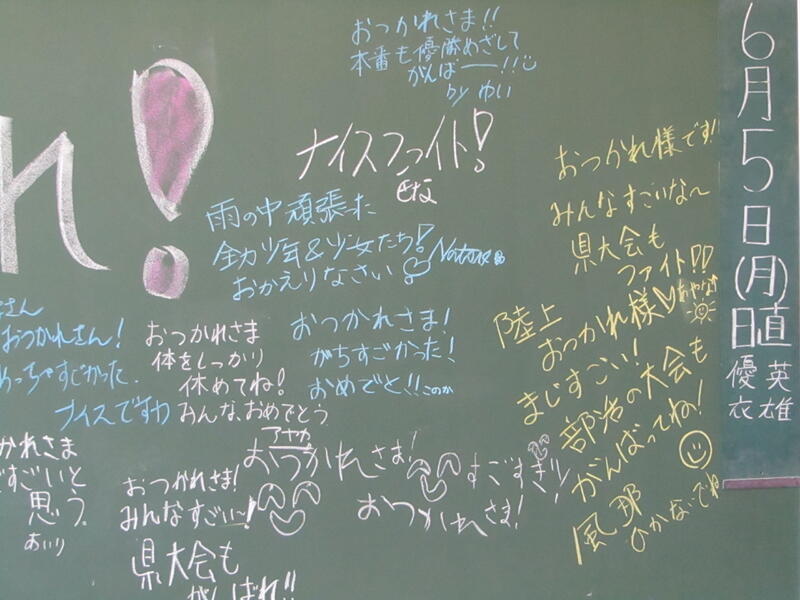 れ!
おつかれさま!!
本番も優勝めざして
がんばー!!
by ゆい
ナイスファイト!
雨の中頑張った
全力少年&少女たち!
おかえりなさい
おつかれさん!
めっちゃすごかった.
ナイスですね
おつかれさま
体をしっかり
休めてね!
みんな、おめでとう
おつかれさま!
がちすごかった!
おめでと!! このか
かれさま
すごいと
思う。
あいり
おつかれさま!
みんなすごい~!
県大会も
がんばれ!!
アヤカ
おつかれさま!
すごすぎ!!
おつかれさま!
おつかれ様です!!
みんなすごいな~
県大会も
ファイト!!
陸上
おつかれ様
まじすごい!
部活の大会も
がんばってね!
風那
6月5日(月)
日直
英雄
優衣